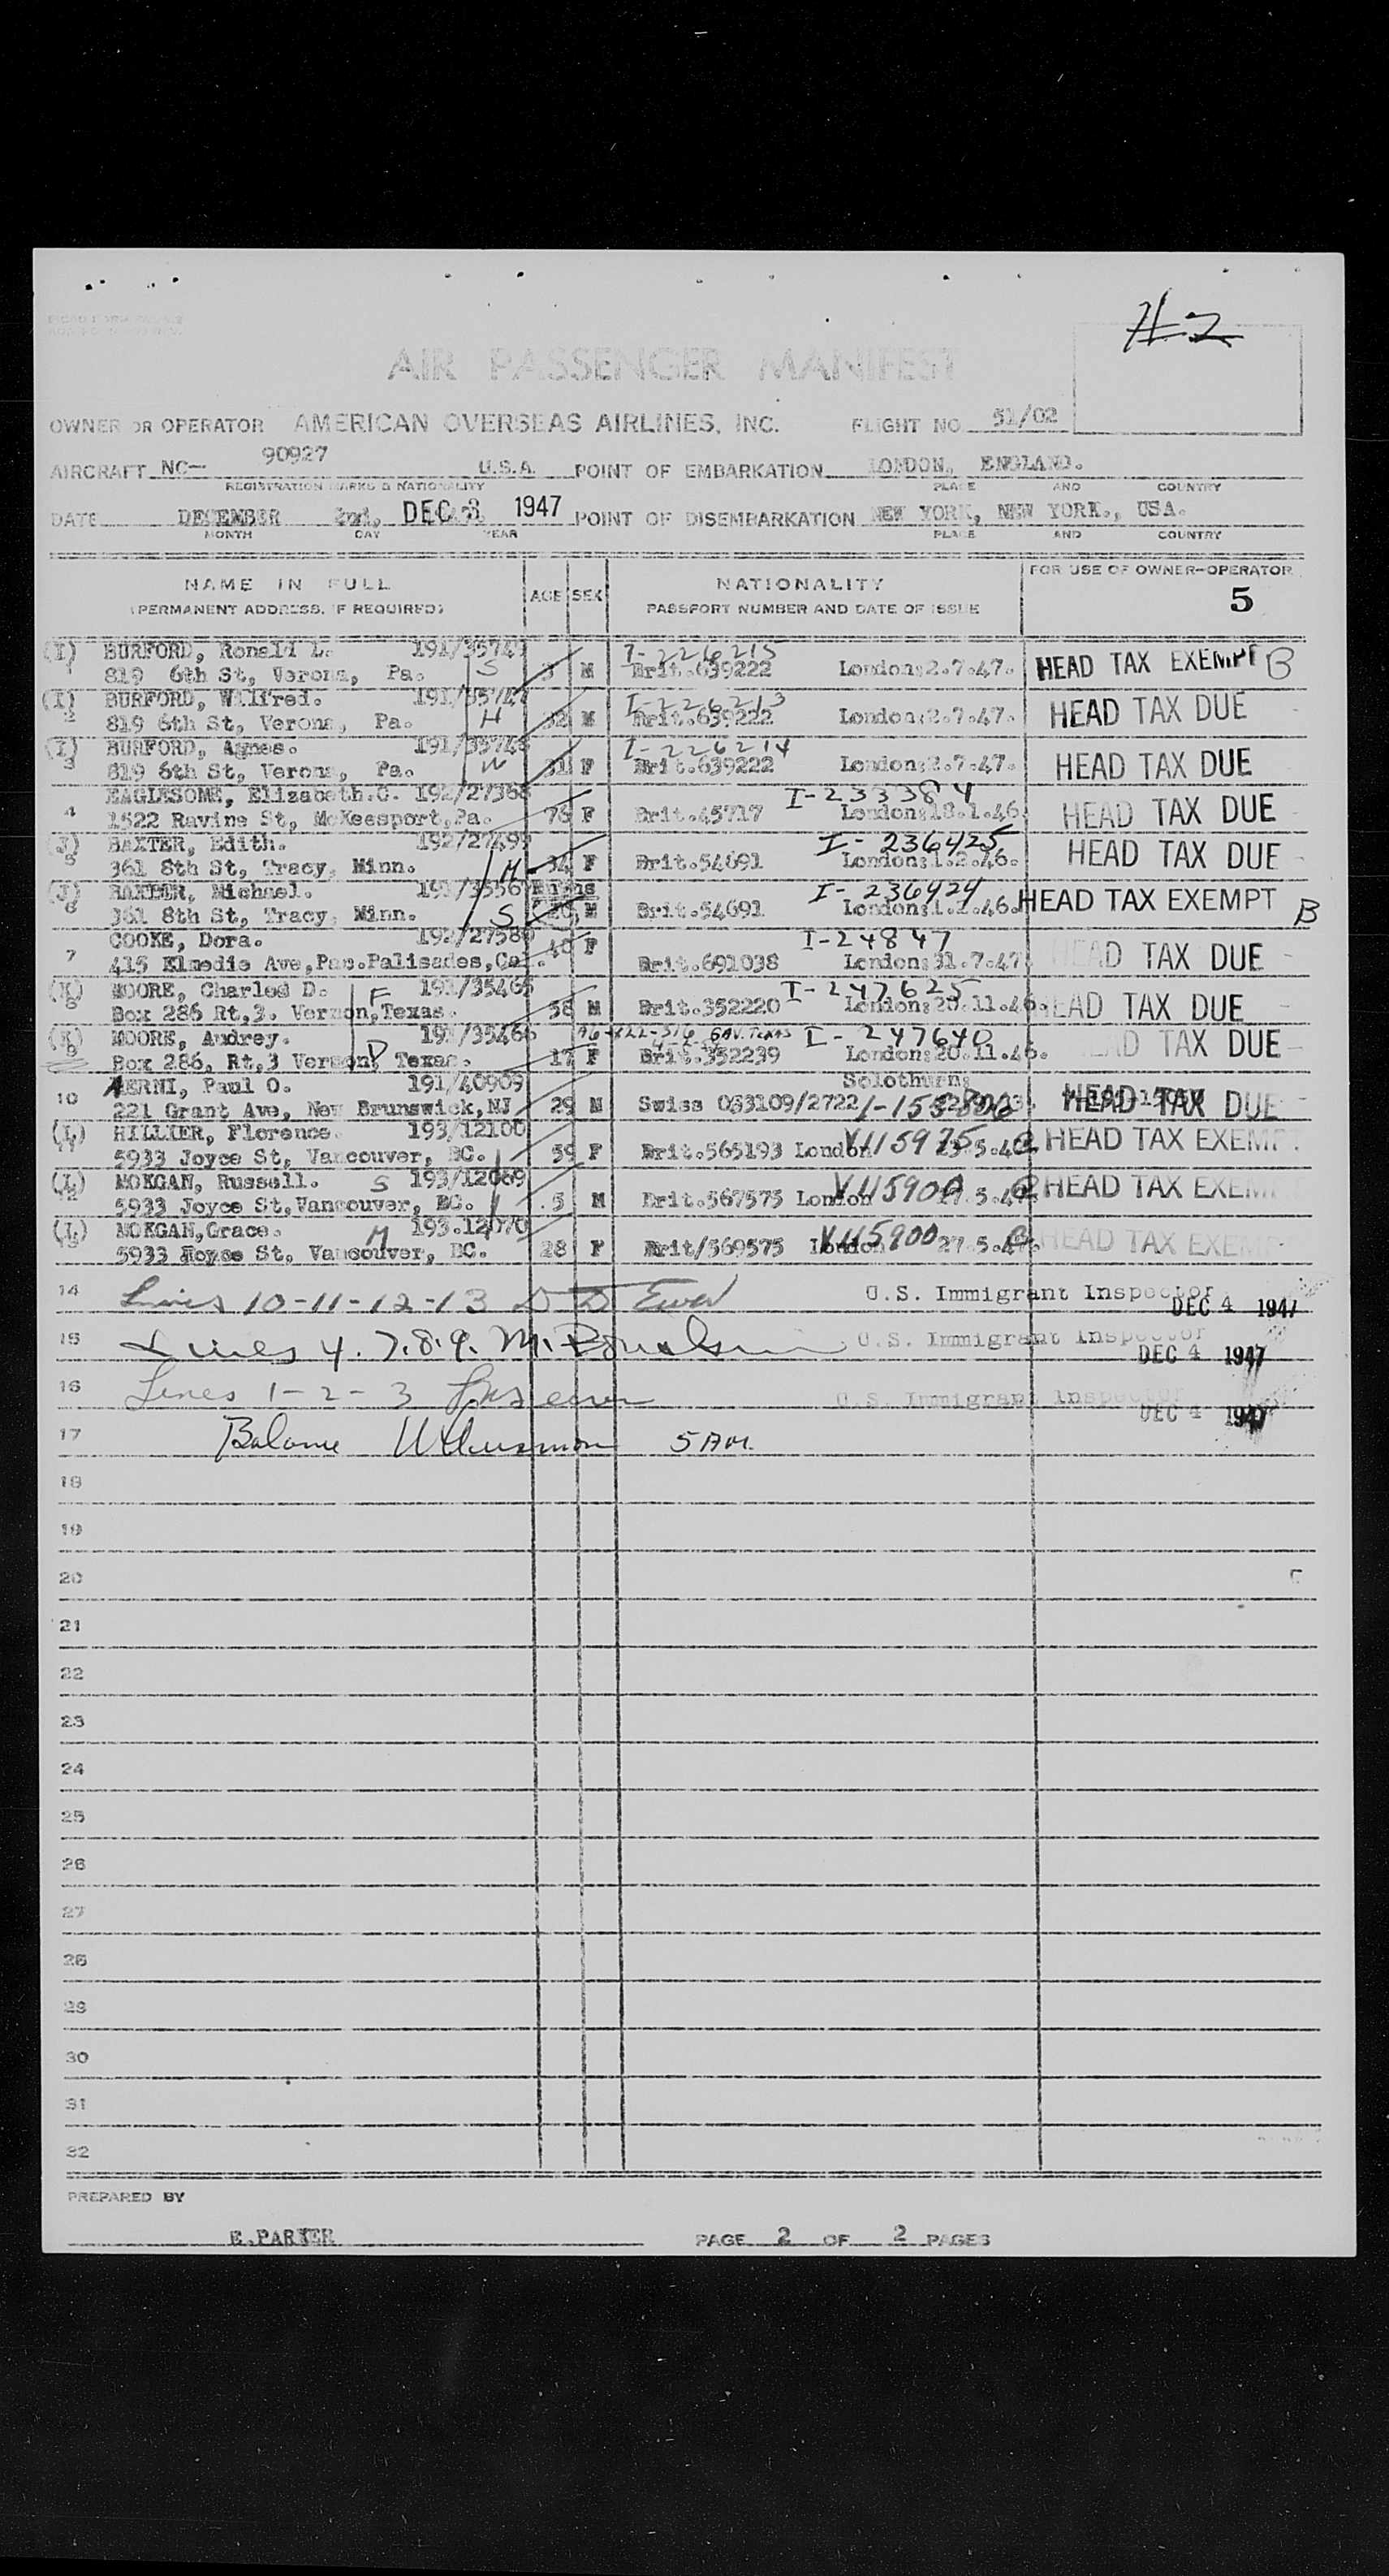 #2
AIR PASSENGER MANIFEST
OWNER OR OPERATOR AMERICAN OVERSEAS AIRLINES, INC. FLIGHT NO. 51/02
AIRCRAFT NC— 90927 U.S.A. POINT OF EMBARKATION LONDON, ENGLAND.
REGISTRATION MARKS & NATIONALITY PLACE AND COUNTRY
DATE DECEMBER 2nd, DEC 3 1947 POINT OF DISEMBARKATION NEW YORK, NEW YORK., USA.
MONTH DAY YEAR PLACE AND COUNTRY
NAME IN FULL AGE SEX NATIONALITY FOR USE OF OWNER-OPERATOR
(PERMANENT ADDRESS, IF REQUIRED) PASSPORT NUMBER AND DATE OF ISSUE 5
(I) BURFORD, Ronald L. 191/35749 I-226215
1 819 6th St, Verona, Pa. S 3 M Brit.639222 London:2.7.47. HEAD TAX EXEMPT B
(I) BURFORD, Wilfred. 191/35747 I-226213
2 819 6th St, Verona, Pa. H 32 M Brit.639222 London:2.7.47. HEAD TAX DUE
(I) BURFORD, Agnes. 191/35748 I-226214
3 819 6th St, Verona, Pa. W 31 F Brit.639222 London:2.7.47. HEAD TAX DUE
EAGLESOME, Elizabeth.C. 192/27368 I-233384
4 1522 Ravine St, McKeesport,Pa. 76 F Brit.45717 London:18.1.46. HEAD TAX DUE
(J) BAXTER, Edith. 192/27499 I-236425
5 361 8th St, Tracy, Minn. M 34 F Brit.54691 London:1.2.46. HEAD TAX DUE
(J) BAXTER, Michael. I-236424
6 361 8th St, Tracy, Minn. S M Brit.54691 London:1.2.46. HEAD TAX EXEMPT B
COOKE, Dora. 192/27580 I-24847
7 415 Elmedie Ave,Pac.Palisades,Cal. 40 F Brit.691038 London:31.7.47. HEAD TAX DUE
(K) MOORE, Charles D. F 193/35465 I-247625
8 Box 286 Rt,3. Vernon,Texas. 58 M Brit.352220 London:20.11.46. HEAD TAX DUE
(K) MOORE, Audrey. 193/35466 I-247640
9 Box 286, Rt,3 Vernon, Texas. D 17 F Brit.352239 London:20.11.46. HEAD TAX DUE
AERNI, Paul O. 191/40909 Solothurn:
10 221 Grant Ave, New Brunswick,NJ 29 M Swiss 033109/2722 HEAD TAX DUE
(L) HILLIER, Florence. 193/12100
11 5933 Joyce St, Vancouver, BC. 59 F Brit.565193 London V115975 HEAD TAX EXEMPT
(L) MOKGAN, Russell. S 193/12069
12 5933 Joyce St,Vancouver, BC. 5 M Brit.567575 London V115900 HEAD TAX EXEMPT
(L) MOKGAN,Grace. M 193.12070
13 5933 Joyce St, Vancouver, BC. 28 F Brit/569575 London V115900 27.5.47. HEAD TAX EXEMPT
14 Lines 10-11-12-13 U.S. Immigrant Inspector DEC 4 1947
15 Lines 4.7.8.9. U.S. Immigrant Inspector DEC 4 1947
16 Lines 1-2-3 U.S. Immigrant Inspector DEC 4 1947
17 Balance 5 AM.
18
19
20
21
22
23
24
25
26
27
28
29
30
31
32
PREPARED BY
E.PARKER PAGE 2 OF 2 PAGES